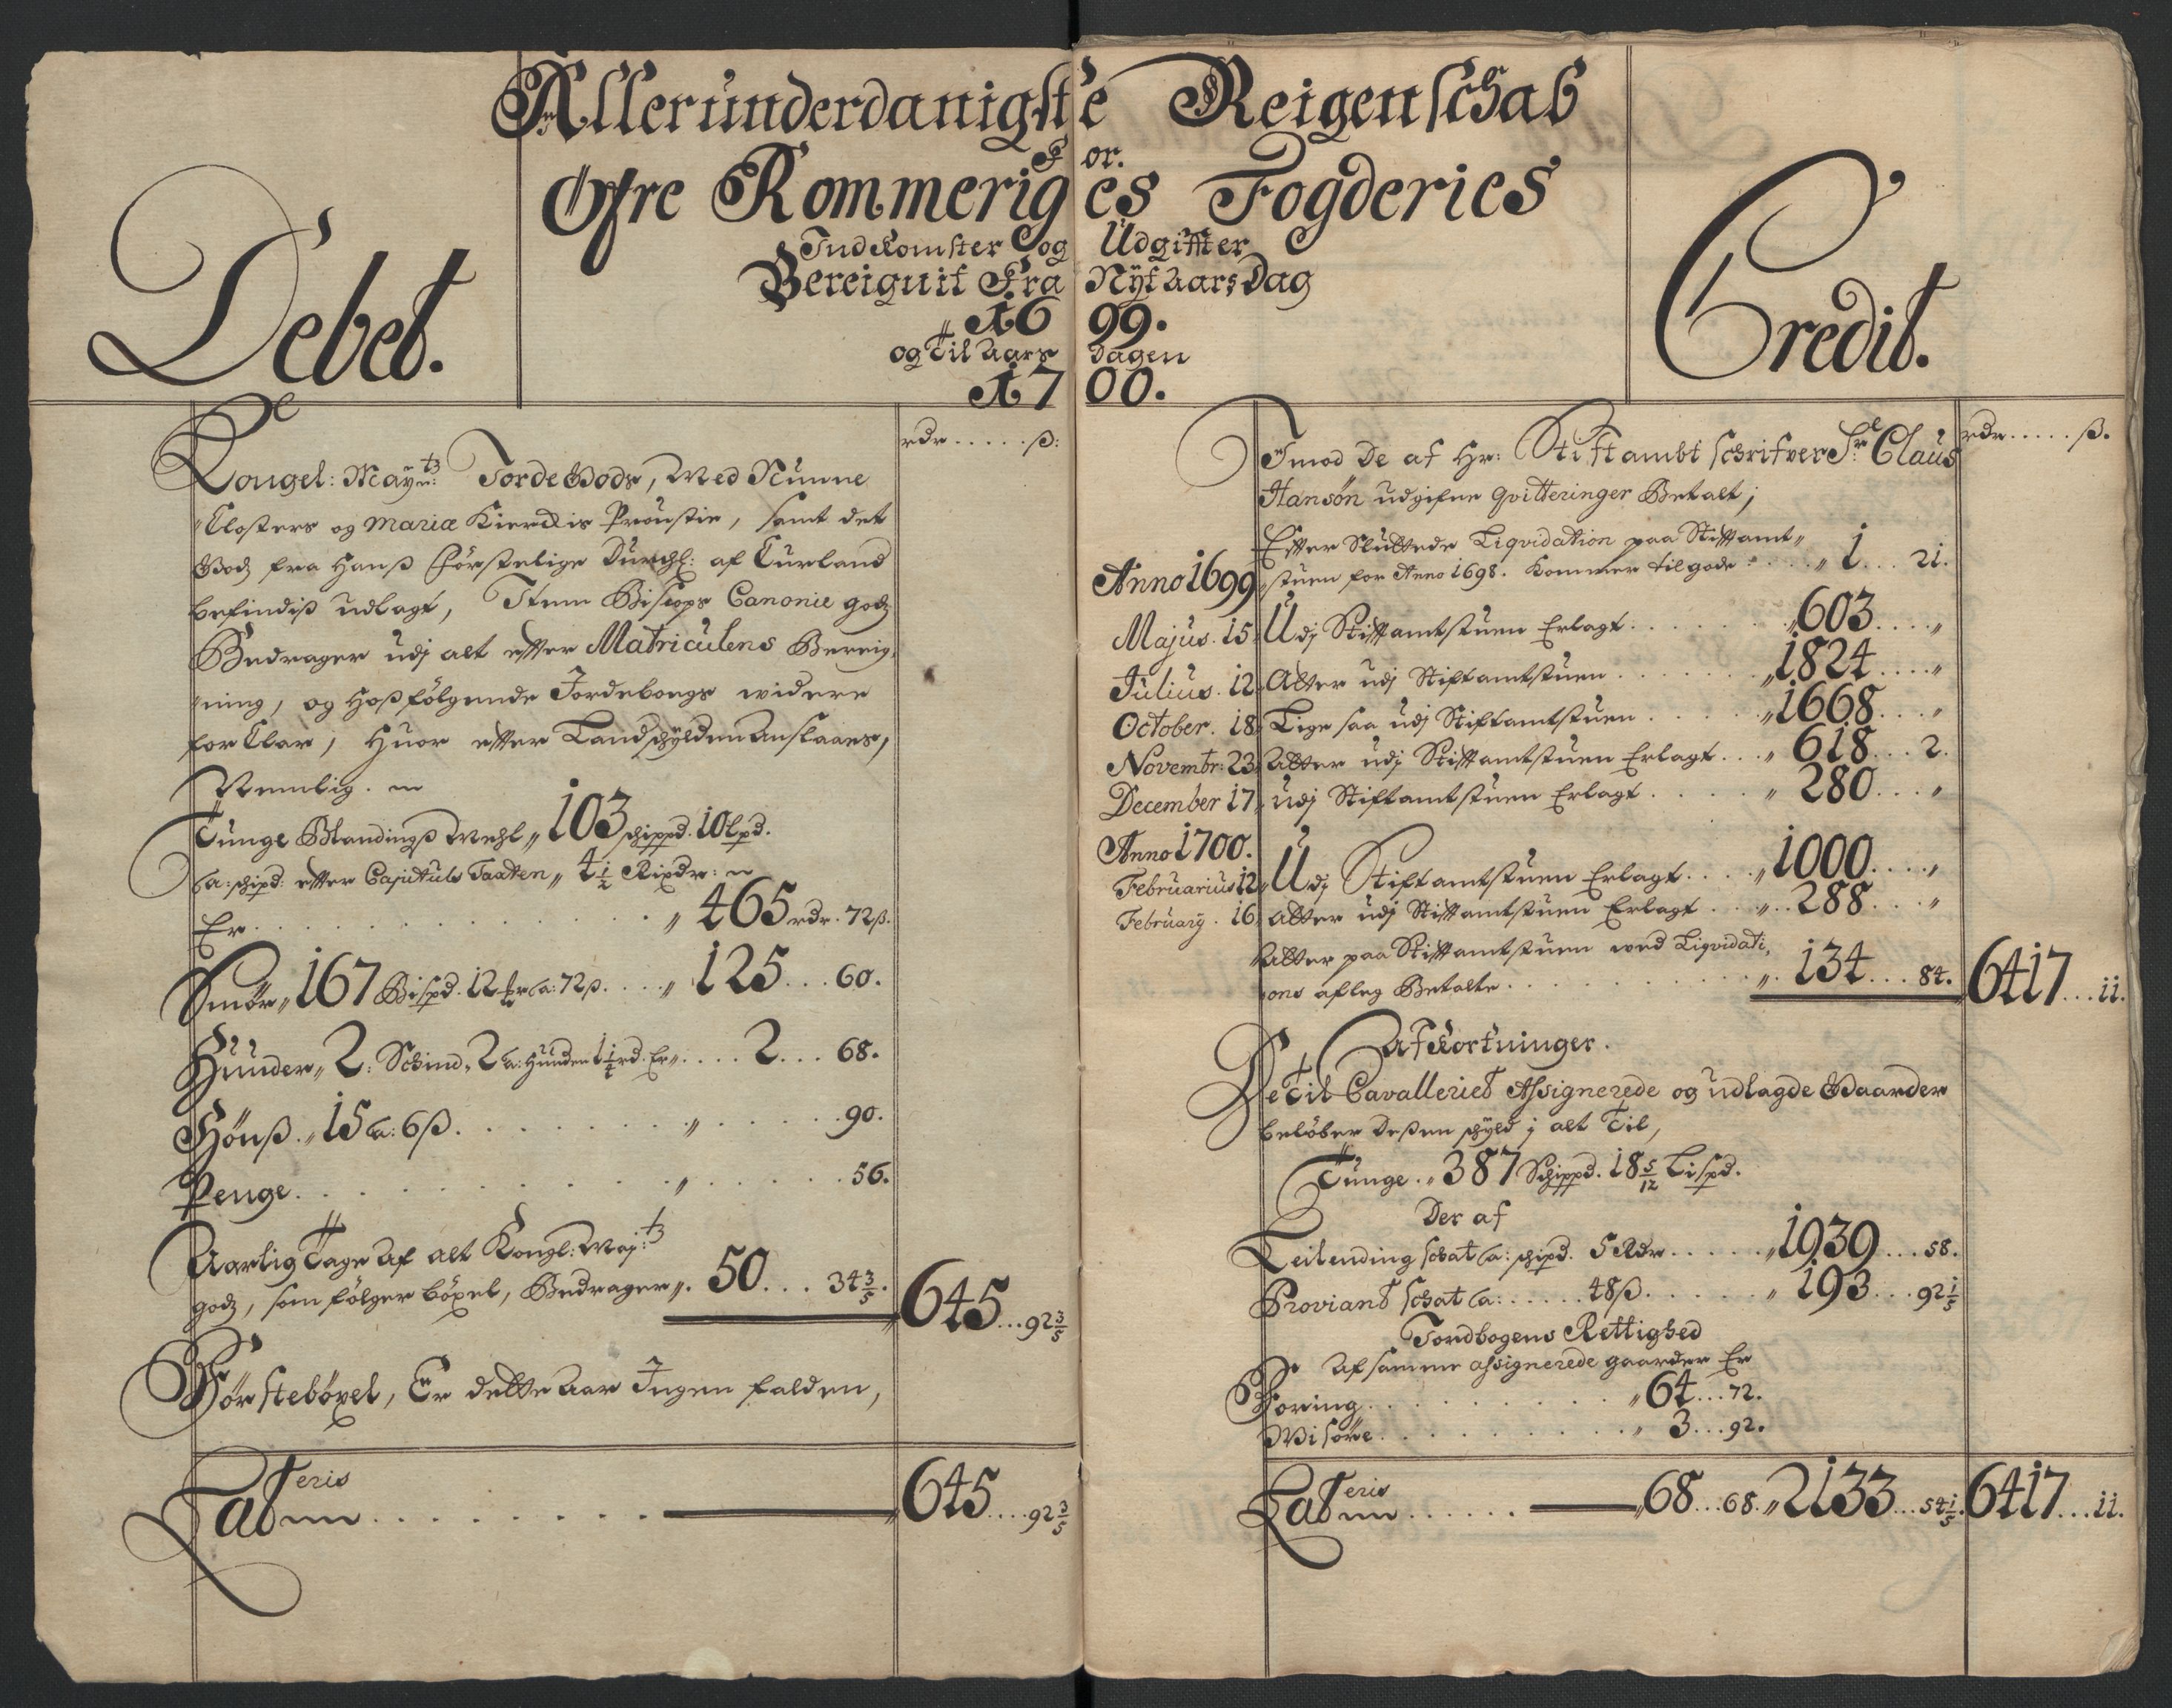 Allerunderdanigste Reigenschab
For.
Øfre Rommeriges Fogderies
Indkomster og Udgiffter
Bereignit Fra Nÿt Aars Dag
1699.
og Til Aars Dagen
1700.
Debet.
rdr ..... ß:
Kongel: Maÿtz Jorde Godz, Med Nunne
Closters og Mariæ Kierckis Proustie, samt det
Godz fra Hanß Förstelige Durchl: af Curland
befindiß udlagt, Item Biscops Canonie godz
Bedrager udj alt effter Matriculens Bereig,
ning, og Hoßfölgende Jordebogs widere
for Clar, Huor effter Landschÿlden Anslaaes,
Nemblig.
Tunge Blandingß Mehl „ 103 schippd. 10 Lpd.
a: schipd: effter Capituls Taxten „ 4 1/2 Rixdr:
Er . . . „ 465 rdr. 72 ß.
Smör „ 167 Bispd. 12 mr a: 72 ß. . . . „ 125 ... 60.
Huuder „ 2: Schind, 2 a: Huuden 1 1/4 rd. Er „ .... 2 ... 68.
Hönß. „ 15 a: 6 ß. . . . „ ... 90.
Penge. . . . „ ... 56.
Aarlig Tage af alt Kongl: Maj:tz
godz, som fölger böxel, Bedrager „. 50 ... 34 3/5. 645 ... 92 3/5
Försteböxel, Er dette Aar Ingen falden,
Lateris . . . 645 .... 92 3/5
Credit.
rdr ..... ß.
Imod De af Hr: Stiftambtschrifver Sr Claus
Hansön udgifne qvitteringer Betalt;
Anno 1699
Effter Sluttede Liqvidation paa Stiftamt„
stuen for Anno 1698. Kommer til gode . . „ 1 ... 21.
Majus. 15. Udj Stiftamtstuen Erlagt . . . „ 603 .... „
Julius. 12. Atter udj Stiftamtstuen . . . „ 1824 .... „
October. 18. Lige saa udj Stiftamtstuen . . . „ 1668 ... „
Novembr: 23. Atter udj Stiftamtstuen Erlagt . . „ 618 ... 2.
December 17. udj Stiftamtstuen Erlagt . . . „ 280 ... „
Anno 1700.
Februarius 12. Udj Stiftamtstuen Erlagt . . . „ 1000 .... „
February. 16. Atter udj Stiftamtstuen Erlagt . . „ .. 288 ... „
Atter paa Stiftamtstuen wed Liqvidati,
ons afleg Betalte . . . „. 134 ... 84. 6417 ... 11.
Afkortninger.
De Til Cavalleriet Assignerede og udlagde Gaarder
belöber deßen schÿld j alt Til,
Tunge. „ 387 Schippd. 18 5/12 Lispd.
Der af
Leilending schat a: schipd. 5 Rdr . . . „ 1939 ... 58.
Proviant schat a: ..... 48 ß. . . . „ 193 ... 92 1/5
Jordbogens Rettighed
Af samme assignerede gaarder Er
Foring . . . „ 64 ... 72.
Wisöre . . . „ 3 ... 92.
Lateris . . . „ 68 ... 68. „ 2133 ... 54 1/5. 6417 ... 11.